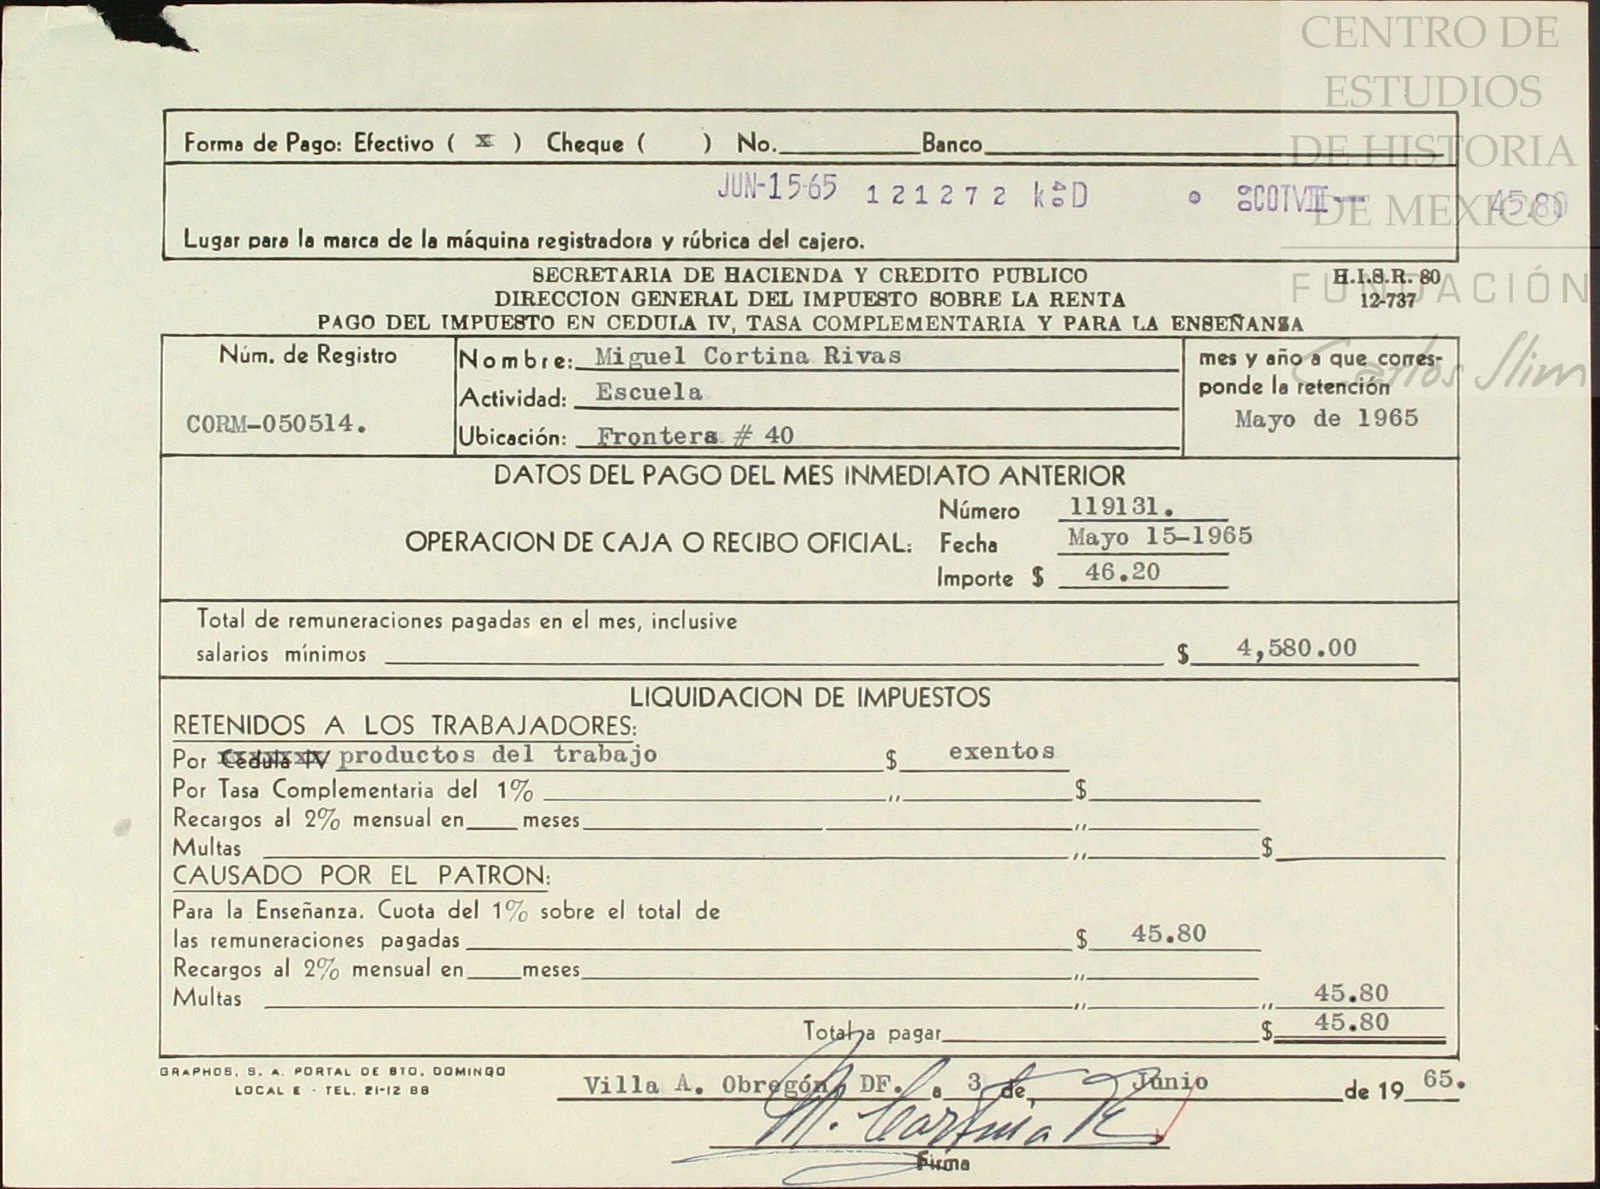 CENTRO DE
ESTUDIOS
DE HISTORIA
DE MEXICO
FUNDACIÓN
Carlos Slim
Forma de Pago: Efectivo ( x ) Cheque (    ) No.________ Banco________
JUN-15-65 121272 45.80
Lugar para la marca de la máquina registradora y rúbrica del cajero.
SECRETARIA DE HACIENDA Y CREDITO PUBLICO H.I.S.R. 80
DIRECCION GENERAL DEL IMPUESTO SOBRE LA RENTA 12-737
PAGO DEL IMPUESTO EN CEDULA IV, TASA COMPLEMENTARIA Y PARA LA ENSEÑANZA
Núm. de Registro
CORM-050514.
Nombre: Miguel Cortina Rivas
Actividad: Escuela
Ubicación: Frontera # 40
mes y año a que corres-
ponde la retención
Mayo de 1965
DATOS DEL PAGO DEL MES INMEDIATO ANTERIOR
OPERACION DE CAJA O RECIBO OFICIAL:
Número 119131.
Fecha Mayo 15-1965
Importe $ 46.20
Total de remuneraciones pagadas en el mes, inclusive
salarios mínimos $ 4,580.00
LIQUIDACION DE IMPUESTOS
RETENIDOS A LOS TRABAJADORES:
Por Cedula IV productos del trabajo $ exentos
Por Tasa Complementaria del 1% ,, $
Recargos al 2% mensual en____meses ,,
Multas ,, $
CAUSADO POR EL PATRON:
Para la Enseñanza. Cuota del 1% sobre el total de
las remuneraciones pagadas $ 45.80
Recargos al 2% mensual en____meses ,,
Multas ,, ,, 45.80
Total a pagar $ 45.80
GRAPHOS, S. A. PORTAL DE STO. DOMINGO
LOCAL E - TEL. 21-12 88
Villa A. Obregón, DF. a 3 de Junio de 19 65.
M. Cortina R
Firma